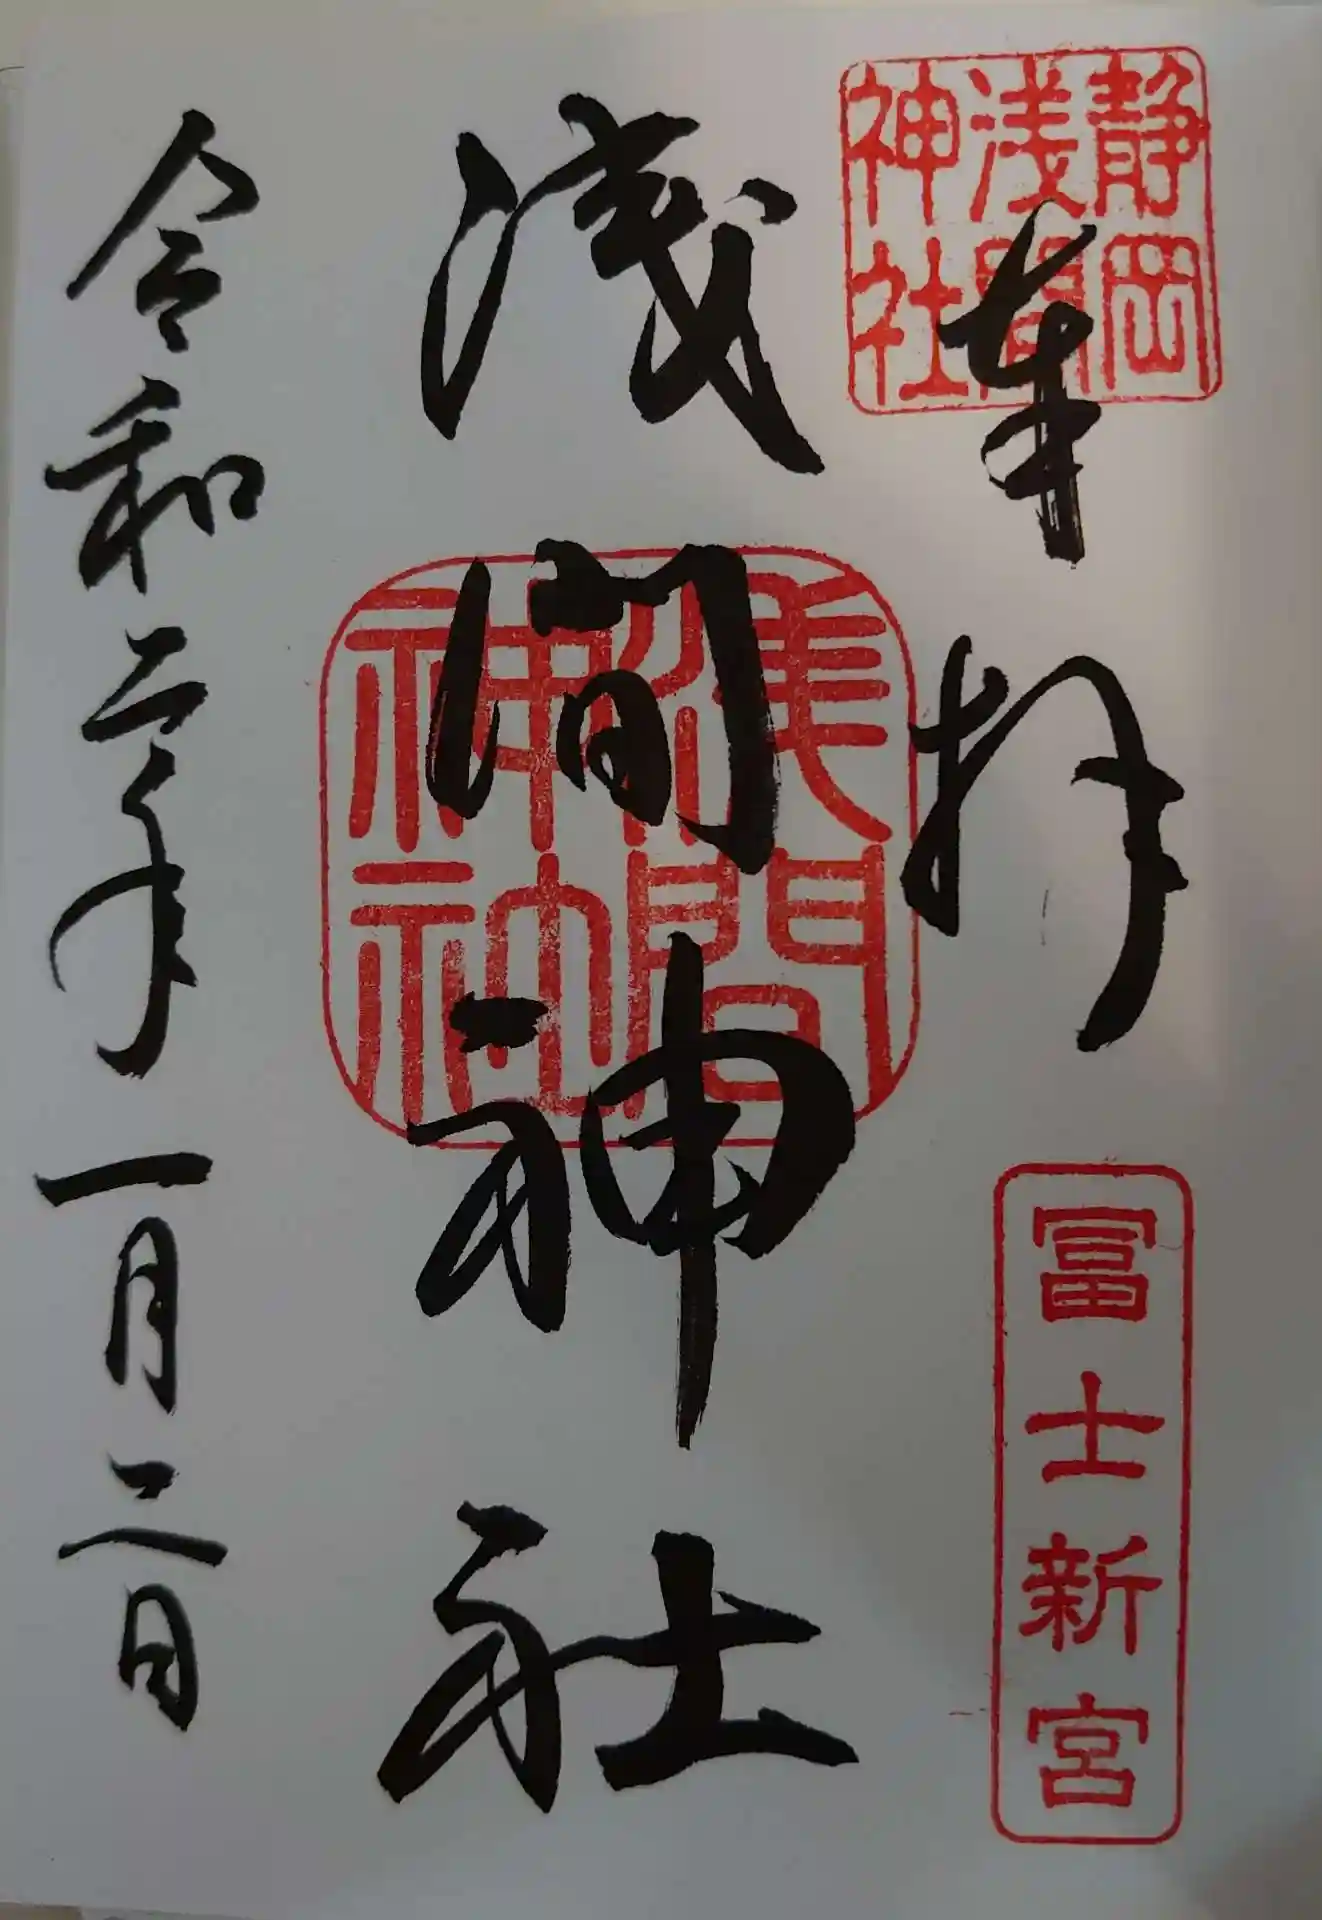 静岡
浅間
神社
奉拝
冨士新宮
浅間神社
浅間
神社
令和二年一月二日